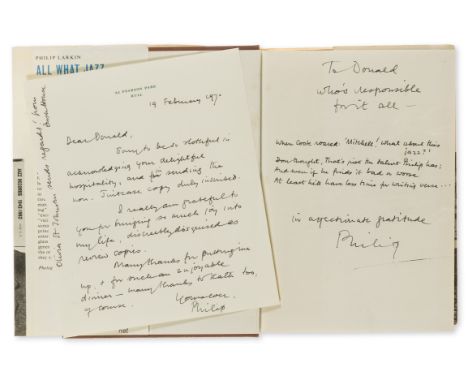 PHILIP LARKIN
ALL WHAT JAZZ
32 PEARSON PARK
HULL
19 February 1970
Dear Donald,
Sorry to be so slothful in
acknowledging your delightful
hospitality, and for sending the
now. Suitcase copy duly inscribed.
I really am grateful to
you for bringing so much joy into
my life, discreetly disguised as
review copies.
Many thanks for putting me
up, & for such an enjoyable
dinner — many thanks to Kath too,
of course.
Yours ever,
Philip
sends regards! from
JAZZ RECORDS 1942-1967
net
To Donald
who's responsible
for it all —
When Cook roared: 'Mitchell! What about this
jazz?'
Don thought, That's just the talent Philip has;
And even if he finds it bad or worse
At least he'll have less time for writing verse...
in affectionate gratitude
Philip